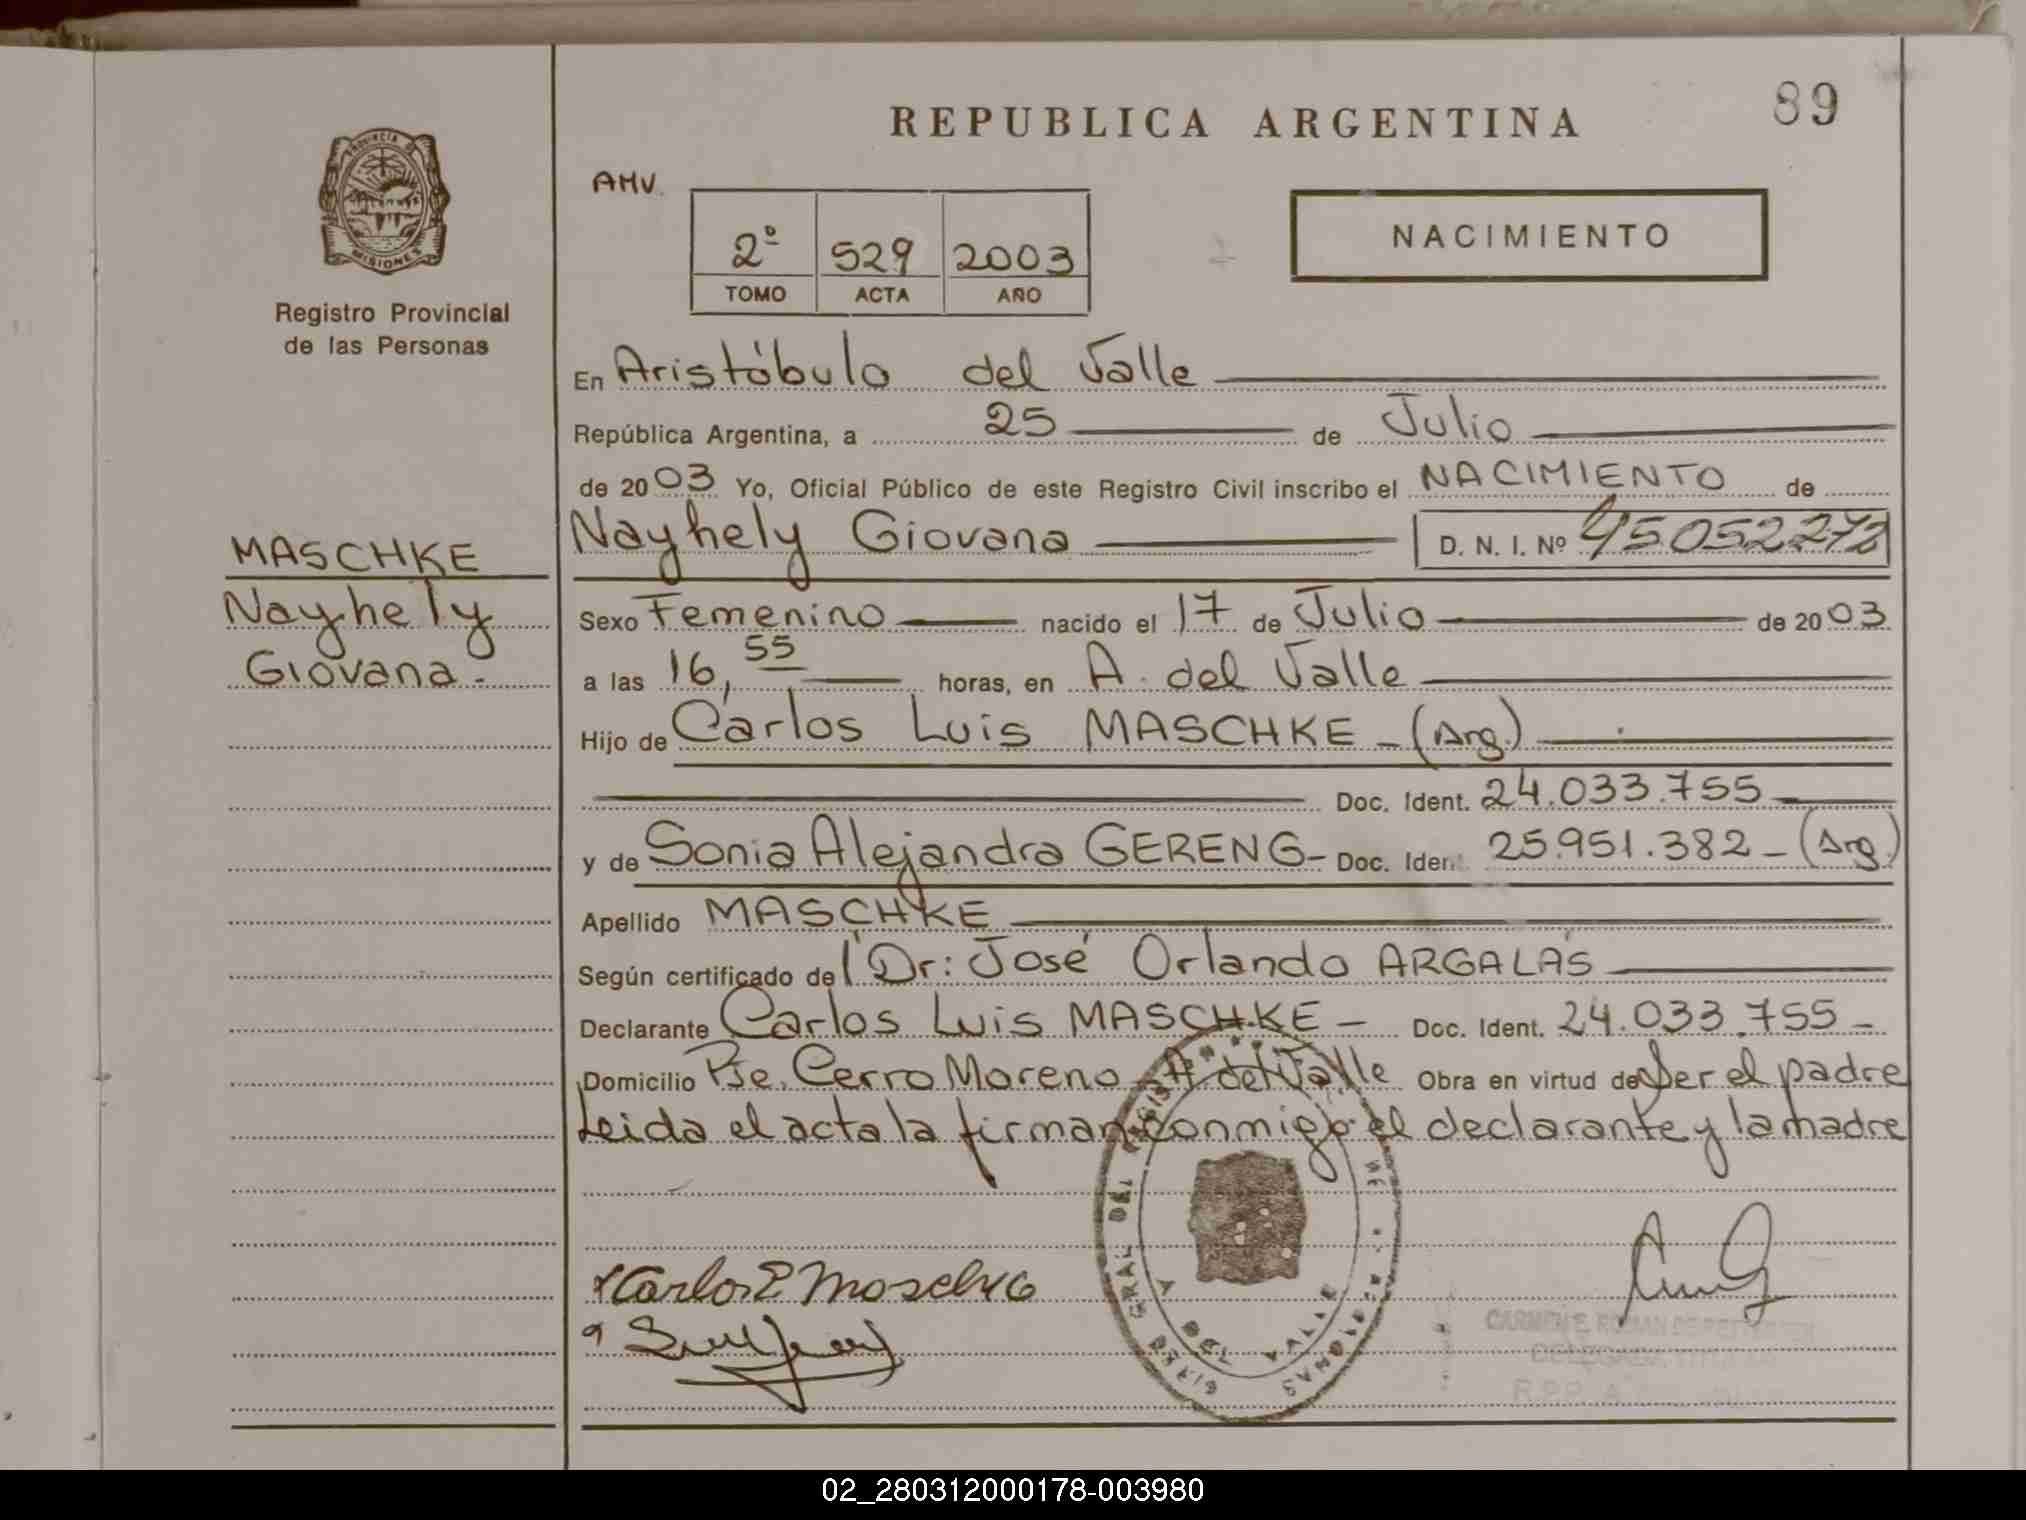 89
REPUBLICA ARGENTINA
PROVINCIA DE
MISIONES
Registro Provincial
de las Personas
AMV.
NACIMIENTO
2º 529 2003
TOMO ACTA AÑO
En Aristóbulo del Valle
República Argentina, a 25 de Julio
de 2003 Yo, Oficial Público de este Registro Civil inscribo el NACIMIENTO de
MASCHKE
Nayhely
Giovana.-
Nayhely Giovana D. N. I. Nº 45052272
Sexo Femenino nacido el 17 de Julio de 2003
a las 16,55 horas, en A. del Valle
Hijo de Carlos Luis MASCHKE - (Arg.)
Doc. Ident. 24.033.755
y de Sonia Alejandra GERENG - Doc. Iden 25.951.382 - (Arg.)
Apellido MASCHKE
Según certificado del Dr: José Orlando ARGALÁS
Declarante Carlos Luis MASCHKE - Doc. Ident. 24.033.755 -
Domicilio Pje. Cerro Moreno - A. del Valle Obra en virtud de Ser el padre
Leida el acta la firman conmigo el declarante y la madre
GRAL DEL
A DEL VALLE
DELEGADA TITULAR
R.P.P. A.
02_280312000178-003980